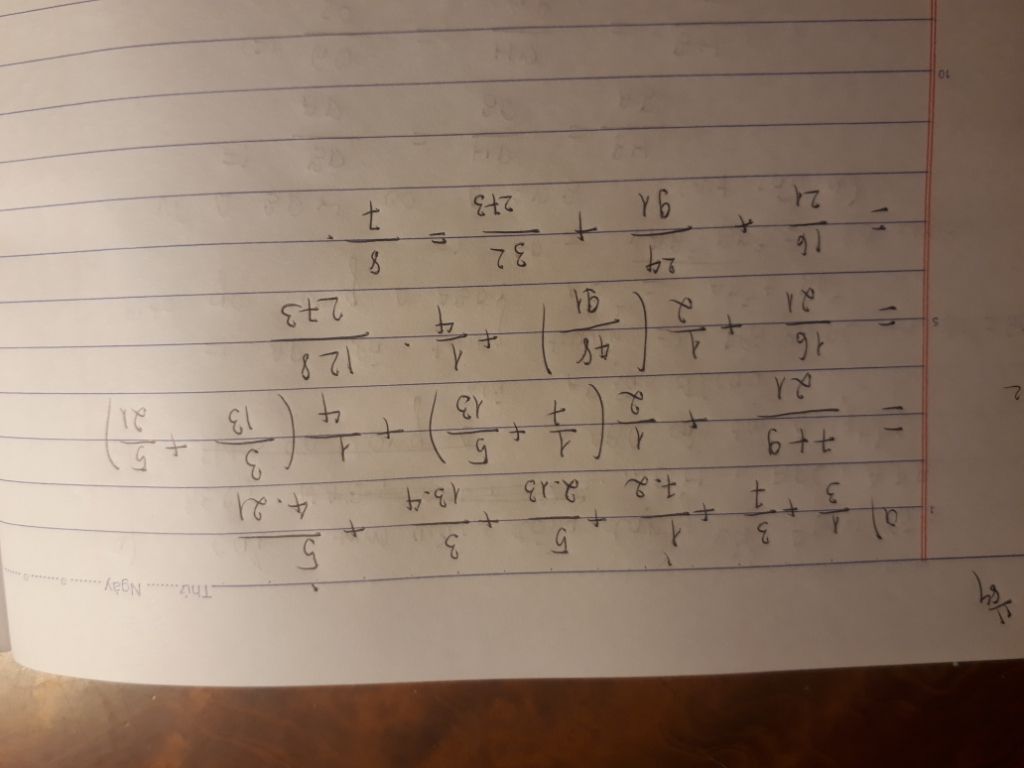 Thứ ....... Ngày ..........
a) 1/3 + 3/7 + 1/7.2 + 5/2.13 + 3/13.4 + 5/4.21
= 7+9/21 + 1/2 (1/7 + 5/13) + 1/4 (3/13 + 5/21)
= 16/21 + 1/2 (48/91) + 1/4 . 128/273
5
= 16/21 + 24/91 + 32/273 = 8/7.
10